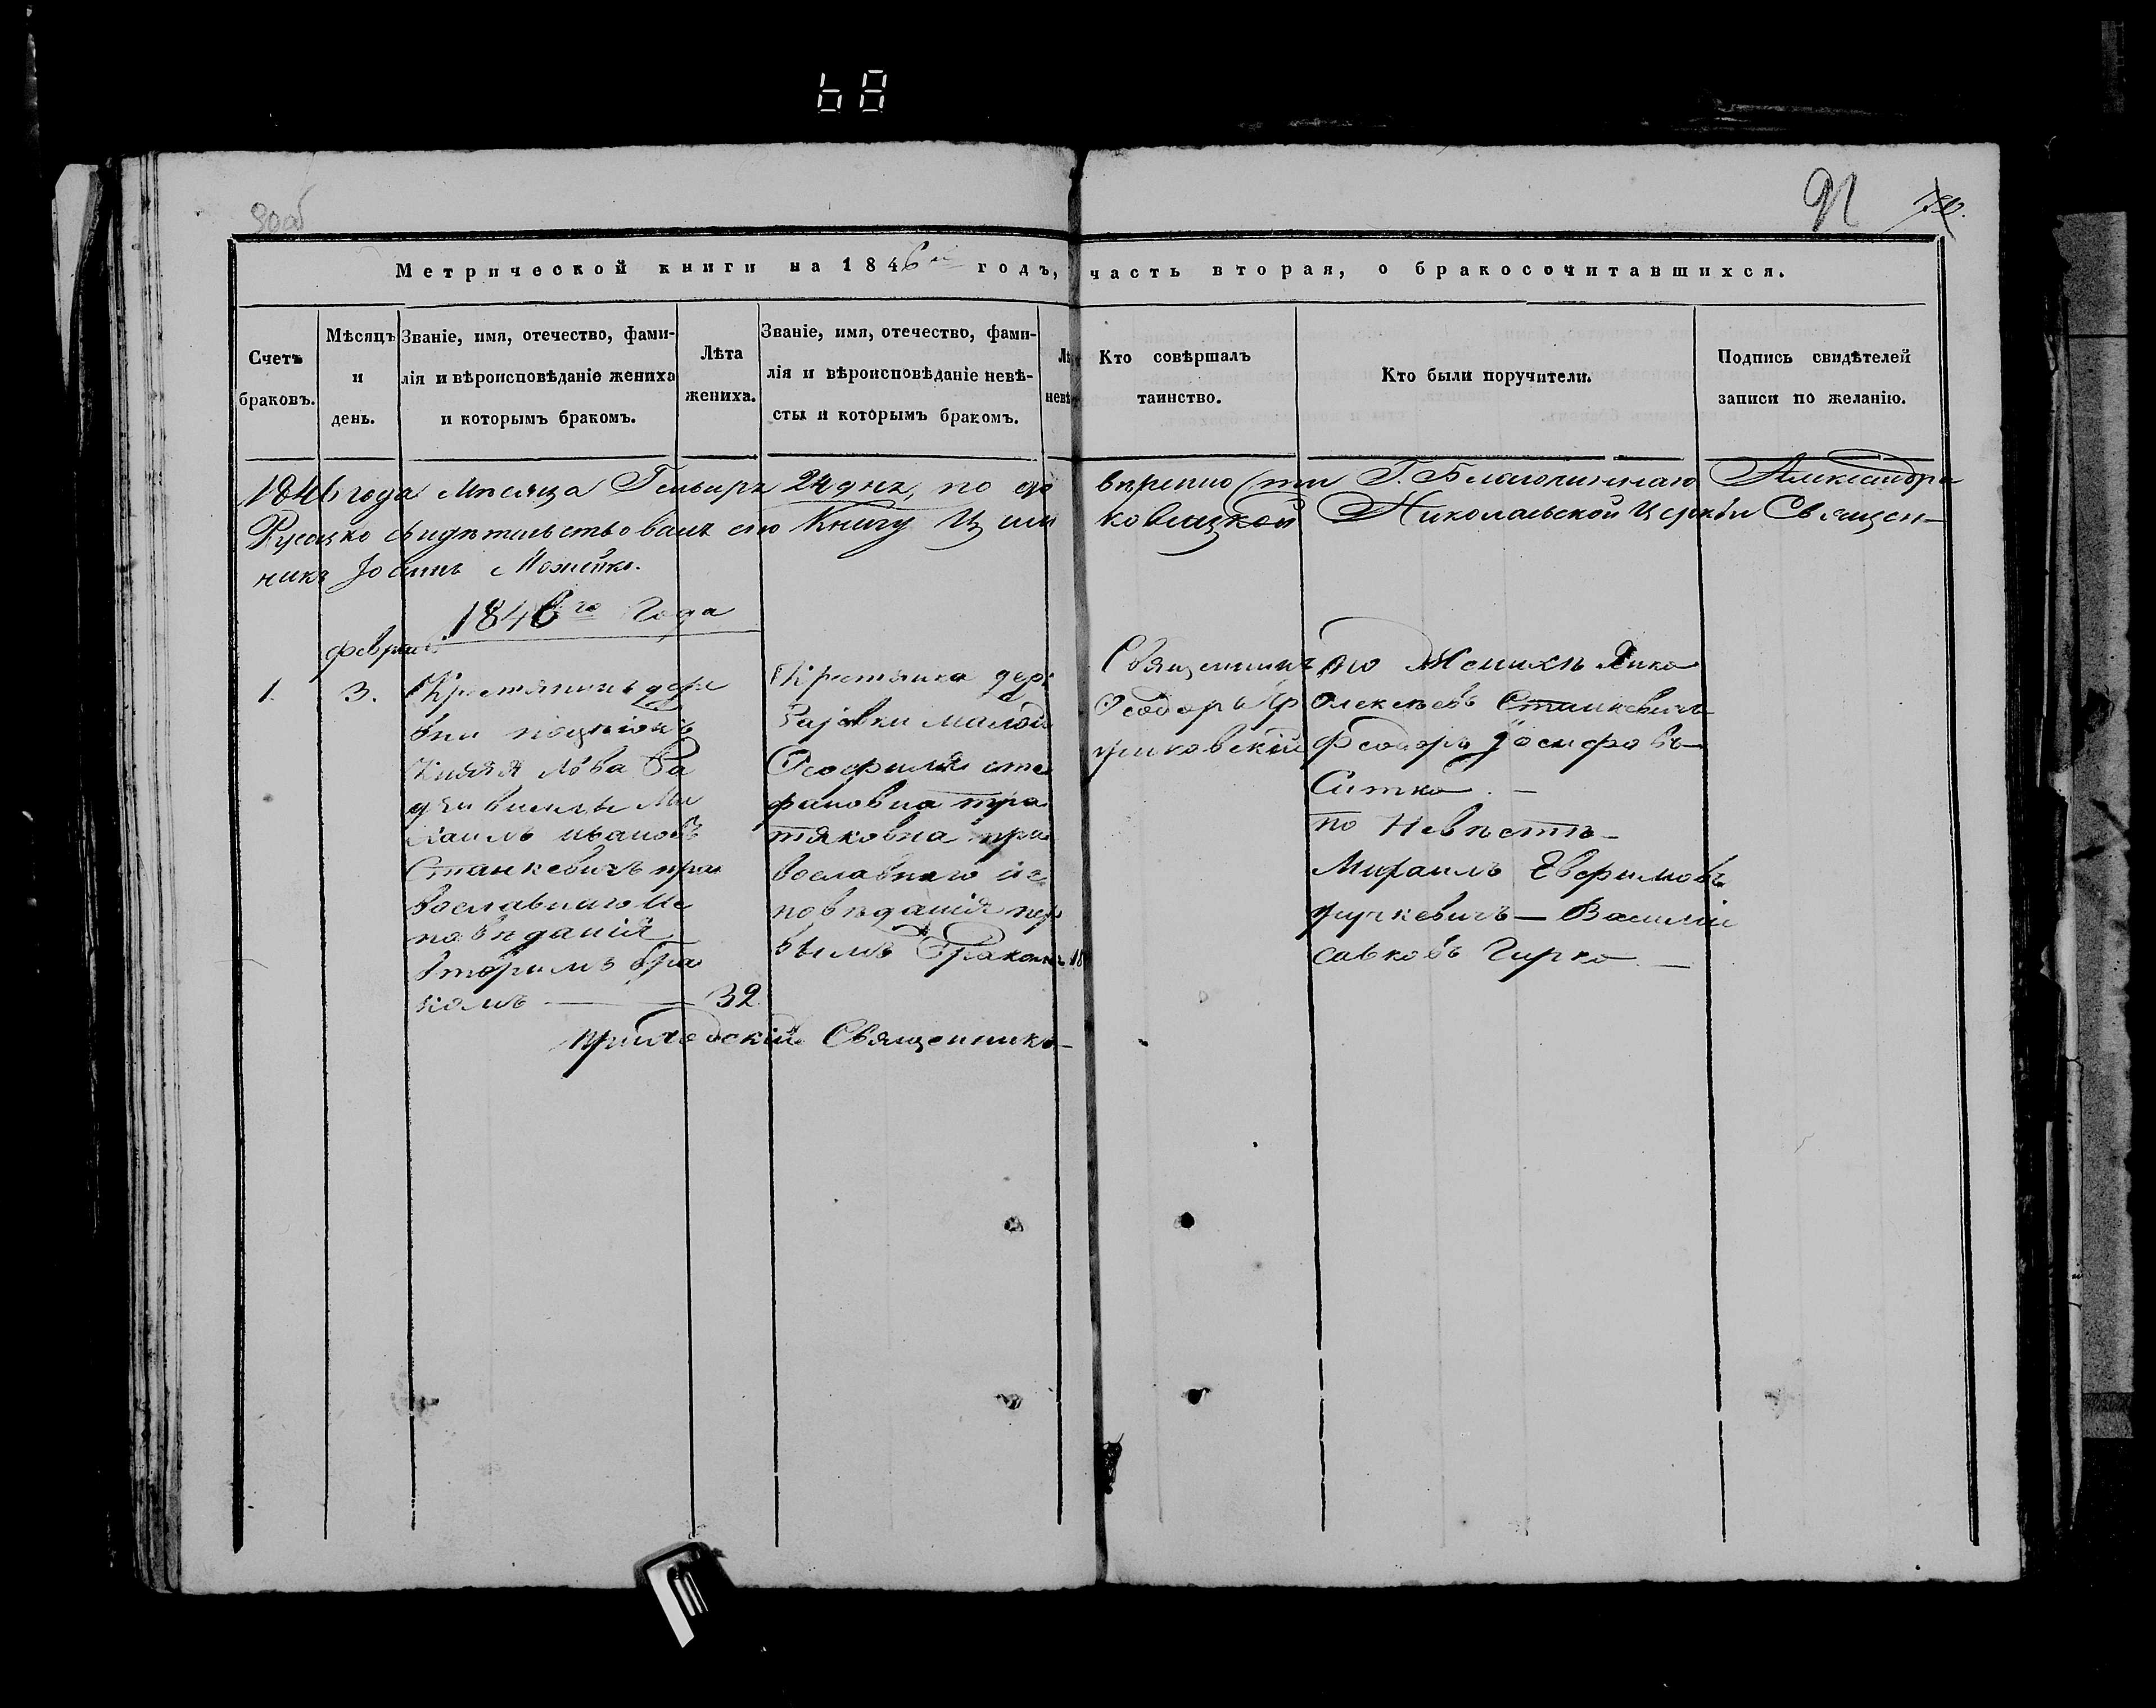 68
90об
91
Метрической книги на 1846й годъ, часть вторая, о бракосочитавшихся.
Счетъ браковъ.
Мѣсяцъ и день.
Званіе, имя, отечество, фами-
лія и вѣроисповѣданіе жениха
и которымъ бракомъ.
Лѣта жениха.
Званіе, имя, отечество, фами-
лія и вѣроисповѣданіе невѣ-
сты и которымъ бракомъ.
Кто совѣршалъ
таинство.
Кто были поручители.
Подпись свидѣтелей
записи по желанію.
1846 года Мѣсяца Генваря 24 дня, по до вѣренно сти Г. Благочиннаго Александра
Русецко свидѣтельствовалъ сію Книгу Николаьской Церкви Священ-
никъ Іоаннъ Можейко.
1846го Года
февраля
1.
3.
Крестянинъ дере
вни
Князя Лва Ра
дзивила Ми
хаилъ ивановъ
Станкевичъ пра
вославнаго Ис
повѣданія
вторымъ бра
комъ — 32
Крестянка дер:
малой
Феофилія сте
фановна тре
тяковна пра
вославнаго ис
повѣданія пер
вымъ Бракомъ 18
Священникъ
Феодоръ
по Женихѣ Янко
Олексѣевъ Станкевичъ
Феодоръ Іосифовъ
Ситко. —
по Невѣстѣ —
Михаилъ Евфимовъ
— Василій
савковъ Гирко —
приходскій Священникъ —